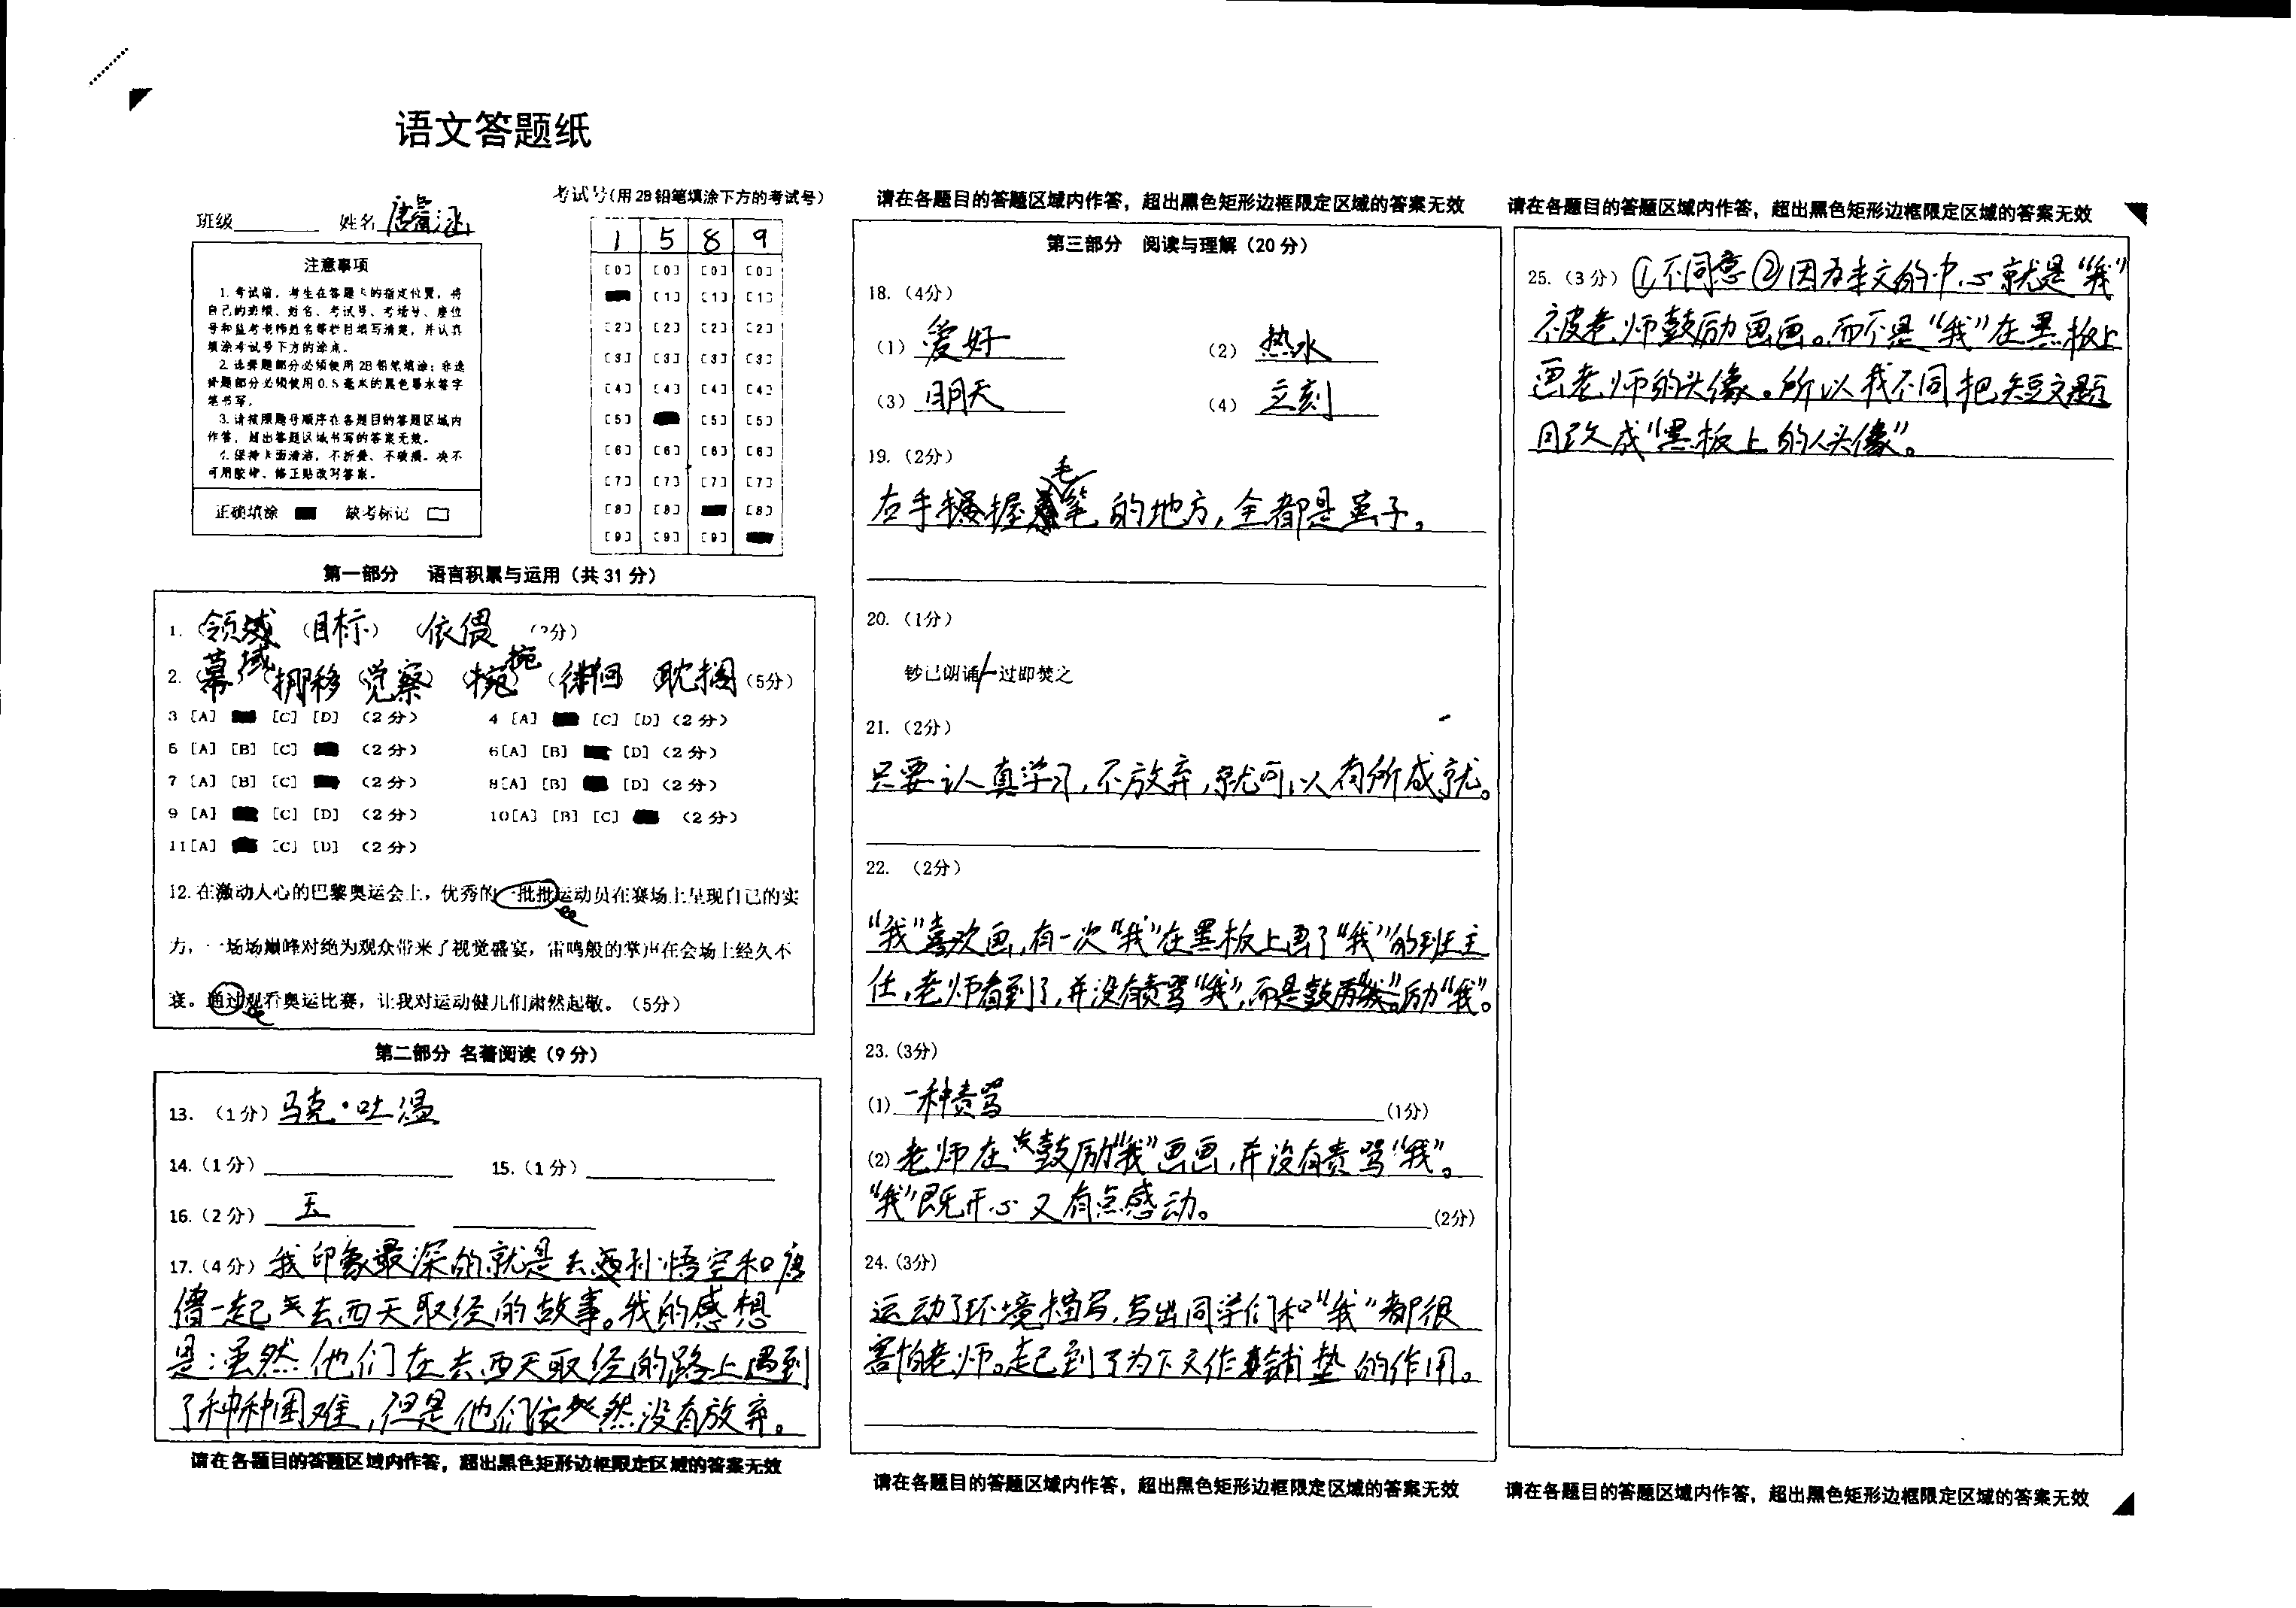 语文答题纸
班级 姓名
考试号(用2B铅笔填涂下方的考试号)
1 5 8 9
注意事项
1.考试前,考生在答题卡的指定位置,将
自己的班级、姓名、考试号、考场号、座位
号和监考老师姓名等栏目填写清楚,并认真
填涂考试号下方的涂点。
2.选择题部分必须使用2B铅笔填涂;非选
择题部分必须使用0.5毫米的黑色墨水签字
笔书写。
3.请按照题号顺序在各题目的答题区域内
作答,超出答题区域书写的答案无效。
4.保持卡面清洁,不折叠、不破损。决不
可用胶带、修正贴改写答案。
正确填涂 缺考标记
[0] [0] [0] [0]
[1] [1] [1]
[2] [2] [2] [2]
[3] [3] [3] [3]
[4] [4] [4] [4]
[5] [5] [5]
[6] [6] [6] [6]
[7] [7] [7] [7]
[8] [8] [8]
[9] [9] [9]
第一部分 语言积累与运用(共31分)
1. 领域 (目标) (依偎
域
2. 幕 挪移 觉察) 惋 (徘徊 耽搁 (5分)
3 [A] [C] [D] (2分) 4 [A] [C] [D] (2分)
5 [A] [B] [C] (2分) 6[A] [B] [D] (2分)
7 [A] [B] [C] (2分) 8[A] [B] [D] (2分)
9 [A] [C] [D] (2分) 10[A] [B] [C] (2分)
11[A] [C] [D] (2分)
12.在激动人心的巴黎奥运会上,优秀的一批批运动员在赛场上呈现自己的实
力,一场场巅峰对绝为观众带来了视觉盛宴,雷鸣般的掌声在会场上经久不
衰。通过观看奥运比赛,让我对运动健儿们肃然起敬。(5分)
第二部分 名著阅读(9分)
13.(1分) 马克·吐温
14.(1分) 15.(1分)
16.(2分) 玉
17.(4分) 我印象最深的就是去西孙悟空和唐
僧一起去西天取经的故事。我的感想
是:虽然他们在去西天取经的路上遇到
了种种困难,但是他们依然没有放弃。
请在各题目的答题区域内作答,超出黑色矩形边框限定区域的答案无效
请在各题目的答题区域内作答,超出黑色矩形边框限定区域的答案无效
第三部分 阅读与理解(20分)
18.(4分)
(1) 爱好 (2) 热水
(3) 明天 (4) 立刻
19.(2分)
毛
右手握笔的地方,全都是茧子。
20.(1分)
钞已朗诵/一过即焚之
21.(2分)
只要认真学习,不放弃,就可以有所成就。
22.(2分)
“我”喜欢画,有一次“我”在黑板上画了“我”的班主
任,老师看到了,并没有责骂“我”,而是鼓励“我”。
23.(3分)
(1) 一种责骂 (1分)
(2) 老师在鼓励“我”画画,并没有责骂“我”。
“我”既开心又有点感动。 (2分)
24.(3分)
运动了环境描写,写出同学们和“我”都很
害怕老师。起到了为下文作铺垫的作用。
请在各题目的答题区域内作答,超出黑色矩形边框限定区域的答案无效
请在各题目的答题区域内作答,超出黑色矩形边框限定区域的答案无效
25.(3分) ①不同意②因为本文的中心就是“我”
被老师鼓励画画。而不是“我”在黑板上
画老师的头像。所以我不同把短文题
目改成“黑板上的人头像”。
请在各题目的答题区域内作答,超出黑色矩形边框限定区域的答案无效